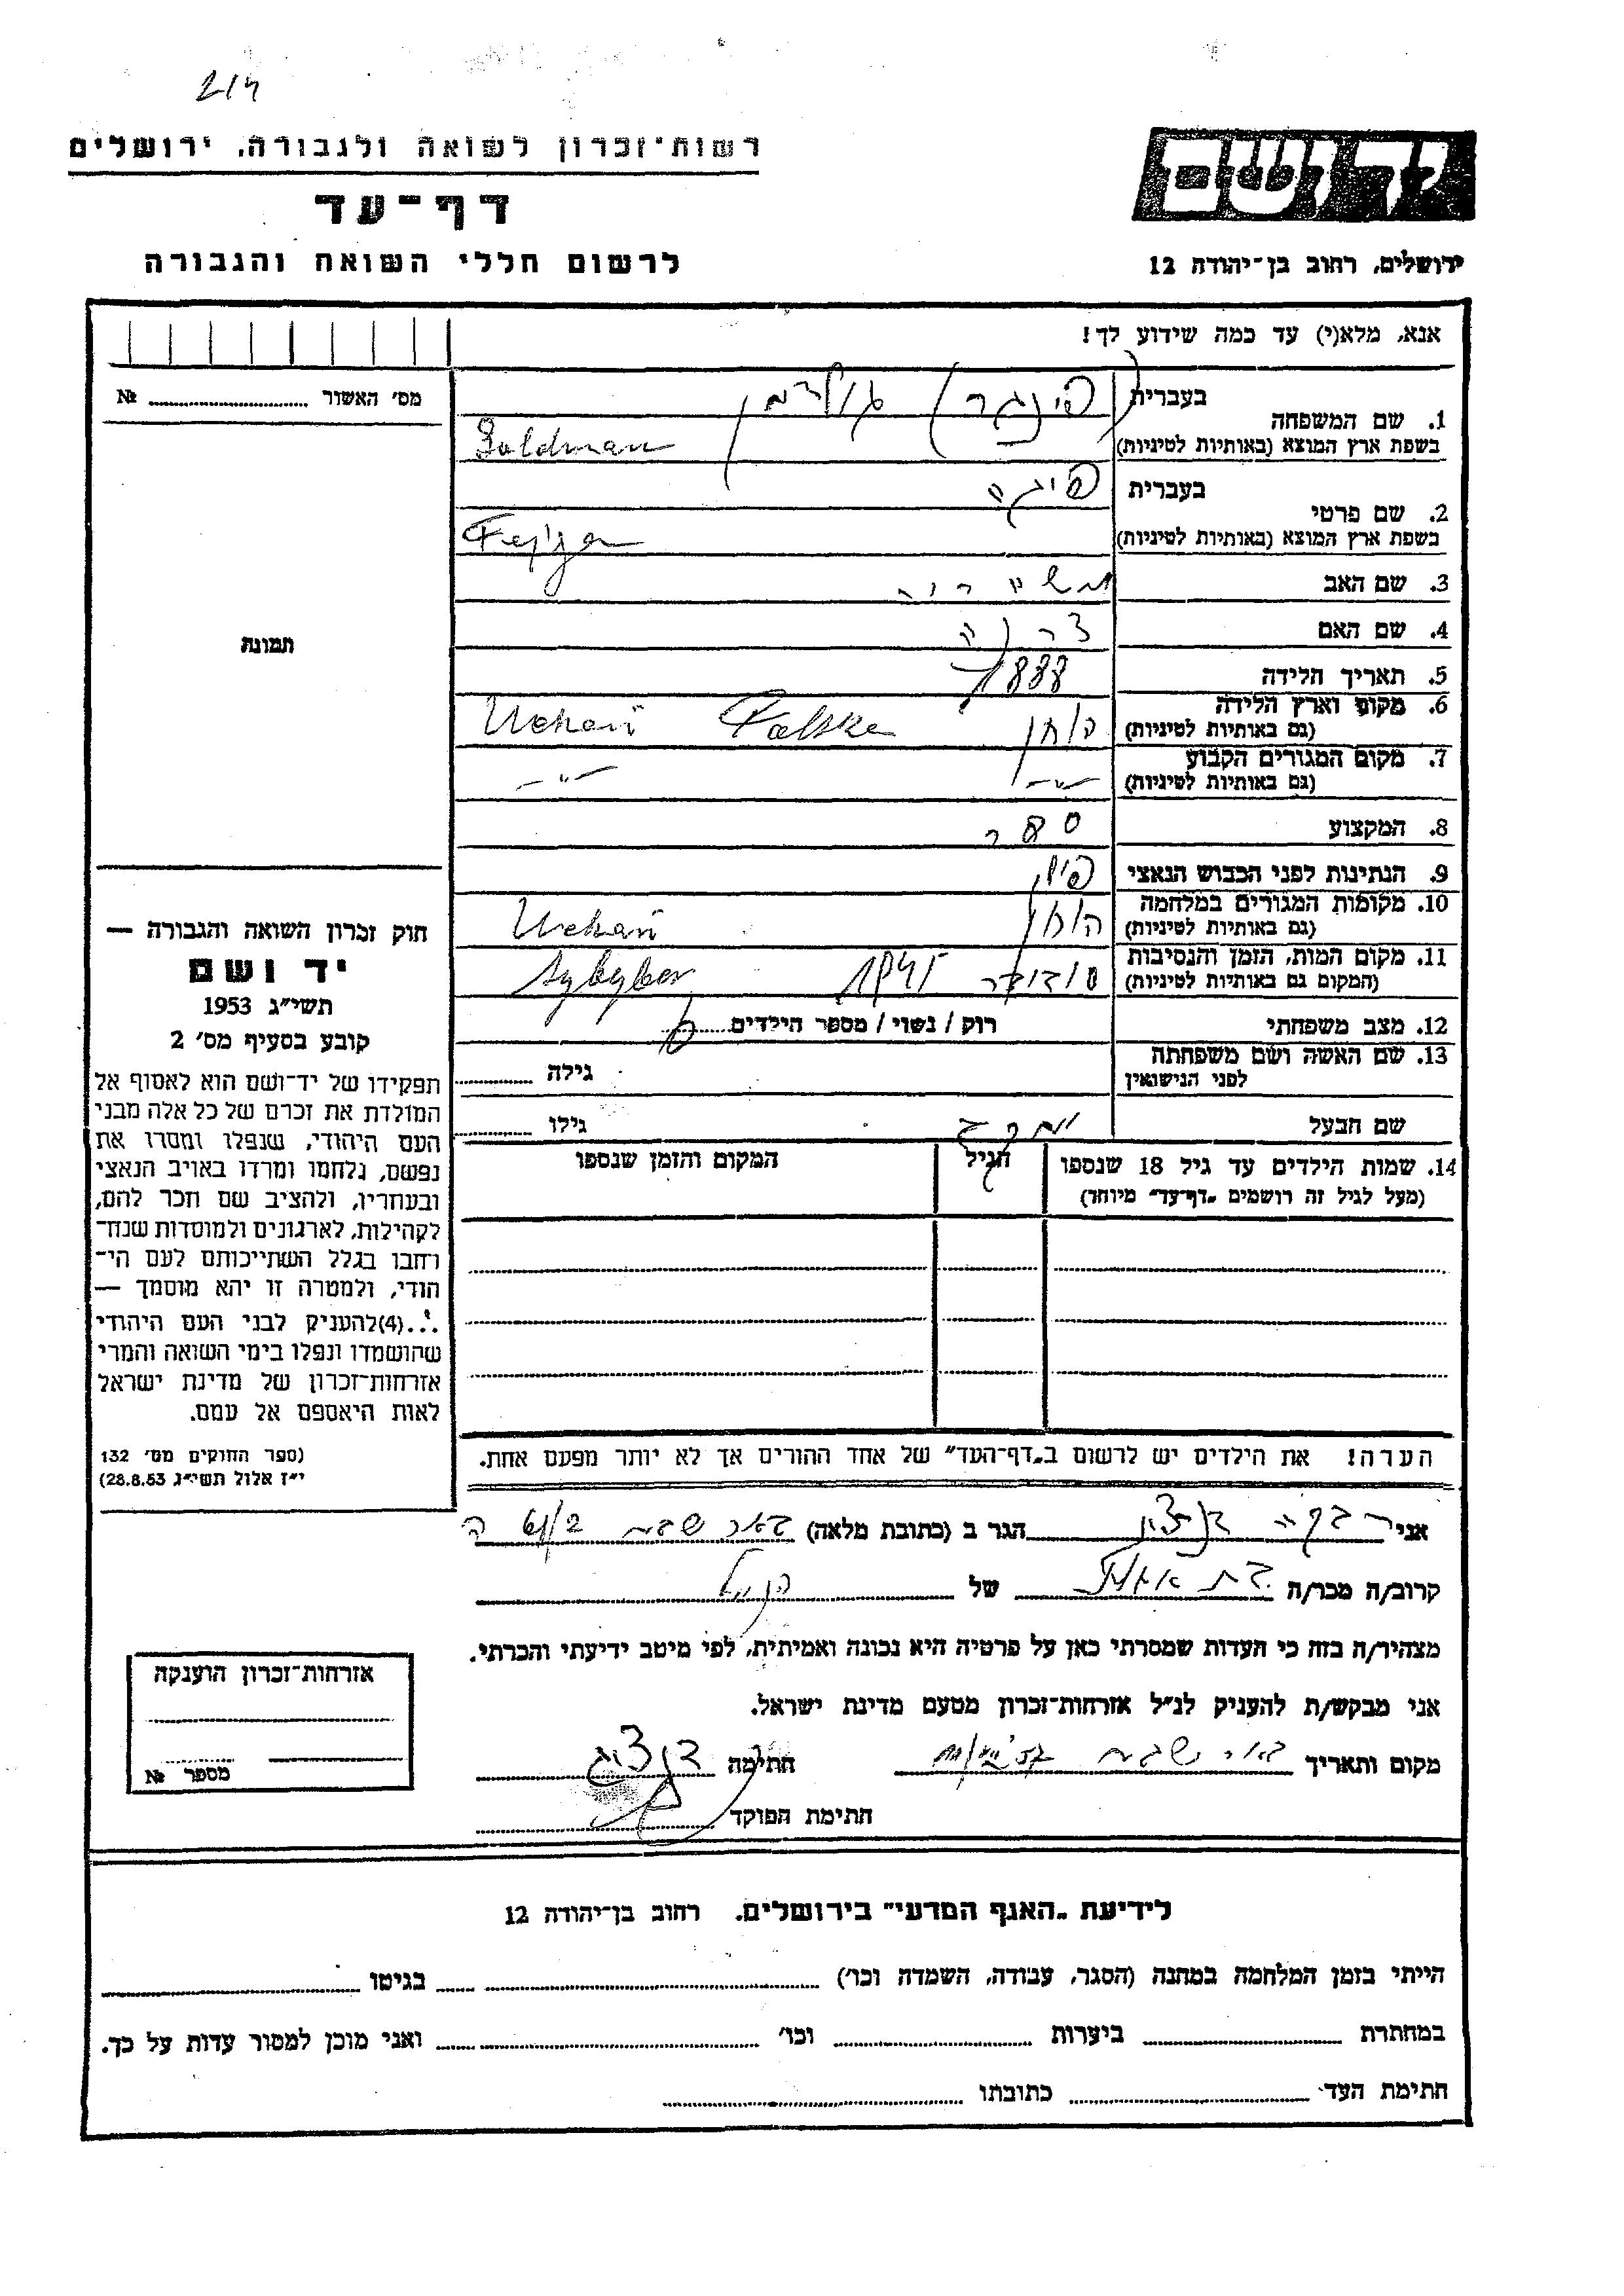 214
רשות־זכרון לשואה ולגבורה, ירושלים
דף־עד
לרשום חללי השואה והגבורה
יד ושם
ירושלים, רחוב בן־יהודה 12
אנא, מלא(י) עד כמה שידוע לך!
מס׳ האשור № 
1. שם המשפחה בעברית (פינגר) גולדמן
בשפת ארץ המוצא (באותיות לטיניות) Goldman
2. שם פרטי בעברית פיגה
בשפת ארץ המוצא (באותיות לטיניות) Fejga
3. שם האב
4. שם האם
5. תאריך הלידה 1888
6. מקום וארץ הלידה
(גם באותיות לטיניות) Uchań Polska
7. מקום המגורים הקבוע
(גם באותיות לטיניות) –"– –"–
8. המקצוע
9. הנתינות לפני הכבוש הנאצי פולין
10. מקומות המגורים במלחמה
(גם באותיות לטיניות) Uchań
11. מקום המות, הזמן והנסיבות
(המקום גם באותיות לטיניות) סוביבר Sybybor
12. מצב משפחתי רוק / נשוי / מספר הילדים
13. שם האשה ושם משפחתה
לפני הנישואין גילה
שם הבעל גילו
14. שמות הילדים עד גיל 18 שנספו הגיל המקום והזמן שנספו
(מעל לגיל זה רושמים „דף־עד״ מיוחד)
הערה! את הילדים יש לרשום ב„דף־העד״ של אחד ההורים אך לא יותר מפעם אחת.
תמונה
חוק זכרון השואה והגבורה —
יד ושם
תשי״ג 1953
קובע בסעיף מס׳ 2
תפקידו של יד־ושם הוא לאסוף אל
המולדת את זכרם של כל אלה מבני
העם היהודי, שנפלו ומסרו את
נפשם, נלחמו ומרדו באויב הנאצי
ובעוזריו, ולהציב שם וזכר להם,
לקהילות, לארגונים ולמוסדות שנח־
רחבו בגלל השתייכותם לעם הי־
הודי, ולמטרה זו יהא מוסמך —
...(4)להעניק לבני העם היהודי
שהושמדו ונפלו בימי השואה והמרי
אזרחות־זכרון של מדינת ישראל
לאות היאספם אל עמם.
(ספר החוקים מס׳ 132
י״ז אלול תשי״ג 28.8.53)
אני רבקה דנציג הגר ב (כתובת מלאה) באר שבע
קרוב/ה מכר/ה של
מצהיר/ה בזה כי העדות שמסרתי כאן על פרטיה היא נכונה ואמיתית, לפי מיטב ידיעתי והכרתי.
אני מבקש/ת להעניק לנ״ל אזרחות־זכרון מטעם מדינת ישראל.
מקום ותאריך באר שבע חתימה דנציג
חתימת הפוקד
אזרחות־זכרון הוענקה
מספר №
לידיעת „האגף המדעי״ בירושלים, רחוב בן־יהודה 12
הייתי בזמן המלחמה במחנה (הסגר, עבודה, השמדה וכו׳) בגיטו
במחתרת ביערות וכו׳ ואני מוכן למסור עדות על כך.
חתימת העד כתובתו